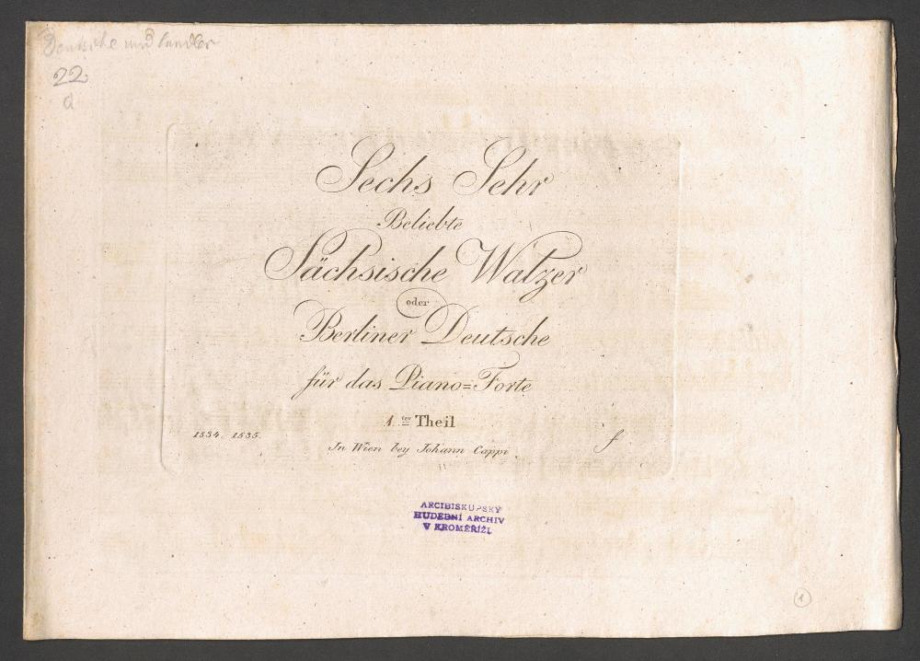 Deutsche und Landler
22
d
Sechs Sehr
Beliebte
Sächsische Walzer
oder
Berliner Deutsche
für das Piano=Forte
1.ter Theil
1834. 1835.
In Wien bey Johann Cappi
f
ARCIBISKUPSKÝ
HUDEBNÍ ARCHIV
V KROMĚŘÍŽI.
1